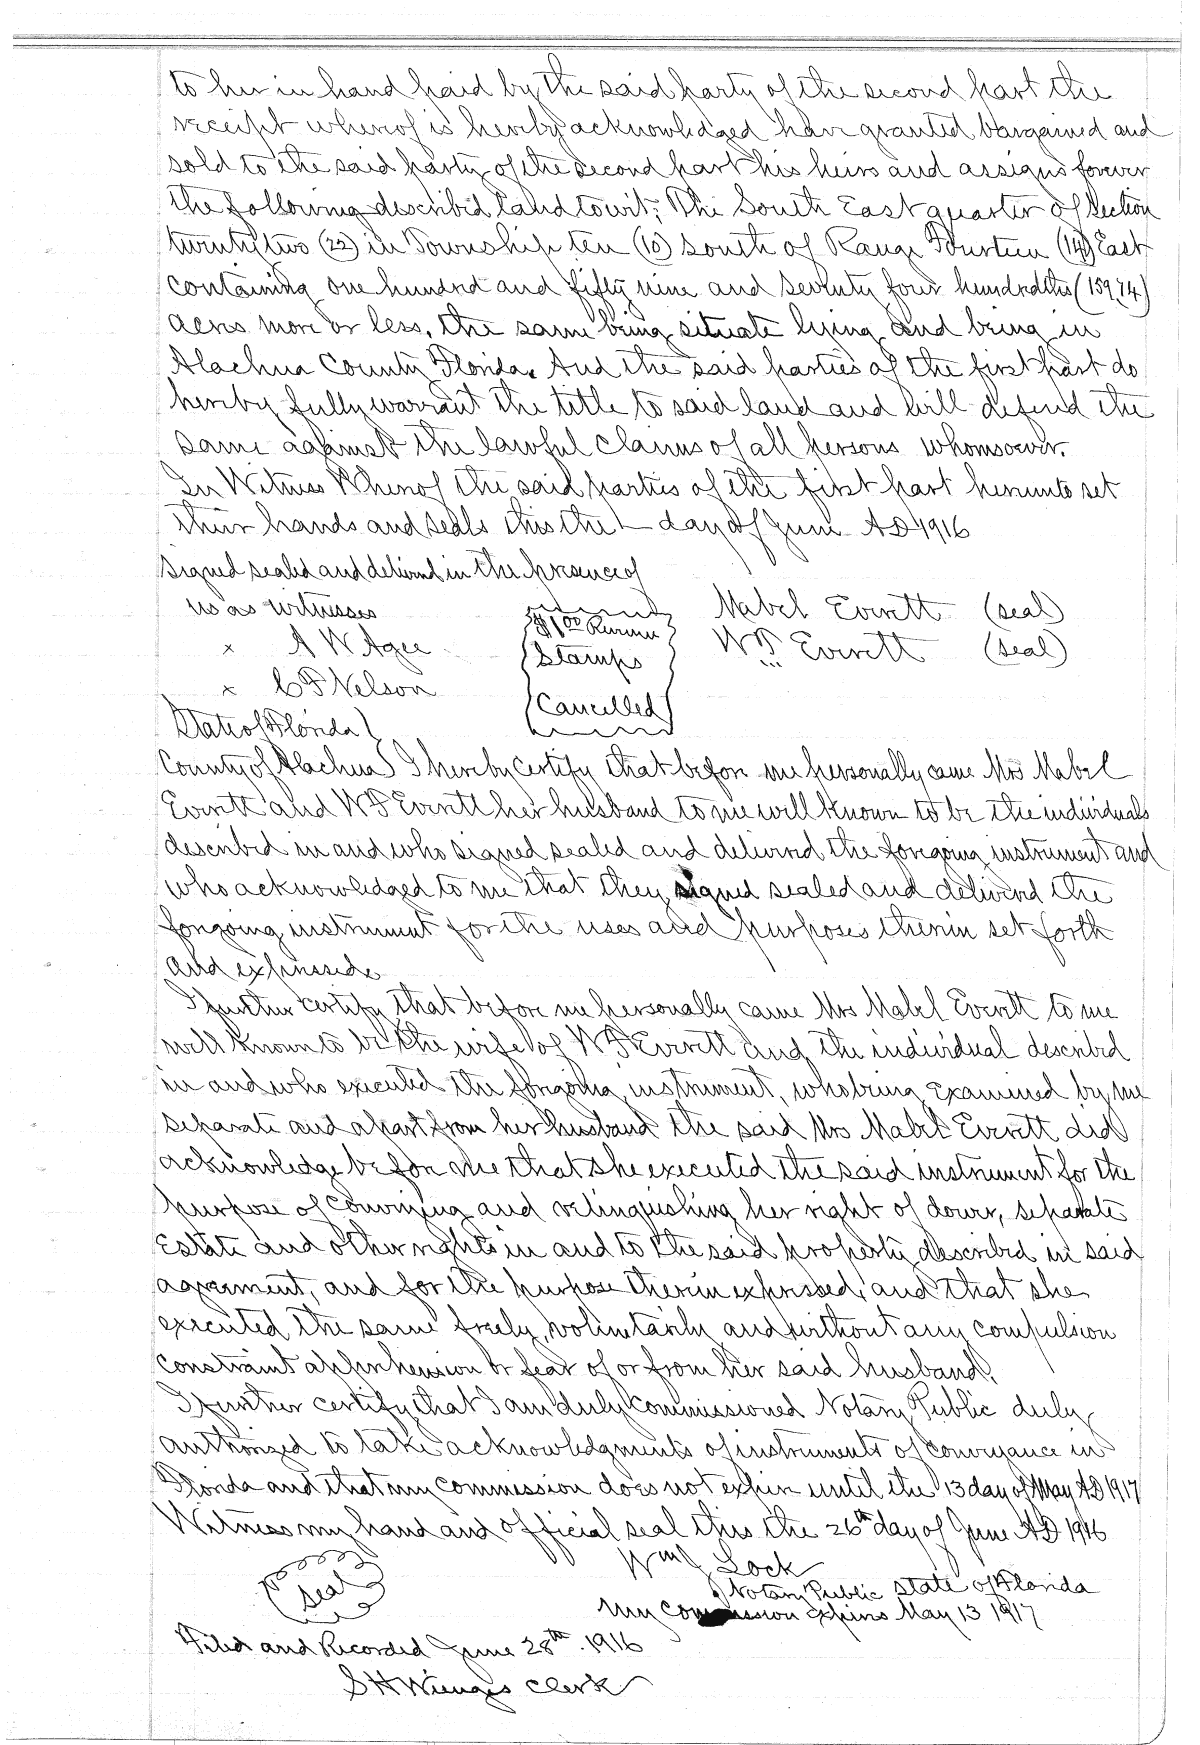 to her in hand paid by the said party of the second part the
receipt whereof is hereby acknowledged have granted bargained and
sold to the said party of the second part his heirs and assigns forever
the following described land towit; The South East quarter of Section
twenty two (22) in Township ten (10) south of Range Fourteen (14) East
containing one hundred and fifty nine and seventy four hundredths (159.74)
acres more or less, the same being situate lying and being in
Alachua County Florida. And the said parties of the first part do
hereby fully warrant the title to said land and will defend the
same against the lawful claims of all persons whomsoever.
In Witness Whereof the said parties of the first part hereunto set
their hands and seals this the — day of June AD 1916
Signed sealed and delivered in the presence of
us as witnesses
Mabel Everett (seal)
x A W Agee
$1.00 Revenue
Stamps
Cancelled
Everett (seal)
x C F Nelson
State of Florida
County of Alachua I hereby certify that before me personally came Mrs Mabel
Everett and Everett her husband to me well known to be the individuals
described in and who signed sealed and delivered the foregoing instrument and
who acknowledged to me that they signed sealed and delivered the
foregoing instrument for the uses and purposes therein set forth
and expressed.
I further certify that before me personally came Mrs Mabel Everett to me
well known to be the wife of Everett and the individual described
in and who executed the foregoing instrument, who being examined by me
separate and apart from her husband the said Mrs Mabel Everett did
acknowledge before me that she executed the said instrument for the
purpose of conveying and relinquishing her right of dower, separate
Estate and other rights in and to the said property described in said
agreement, and for the purpose therein expressed, and that she
executed the same freely, volintarily and without any compulsion
constraint apprehension or fear of or from her said husband.
I further certify that I am duly commissioned Notary Public duly
authorized to take acknowledgments of instruments of conveyance in
Florida and that my commission does not expire until the 13 day of May AD 1917
Witness my hand and official seal this the 26th day of June AD 1916
seal
Lock
Notary Public State of Florida
My commission expires May 13 1917
Filed and Recorded June 28th. 1916
S H Wienges Clerk